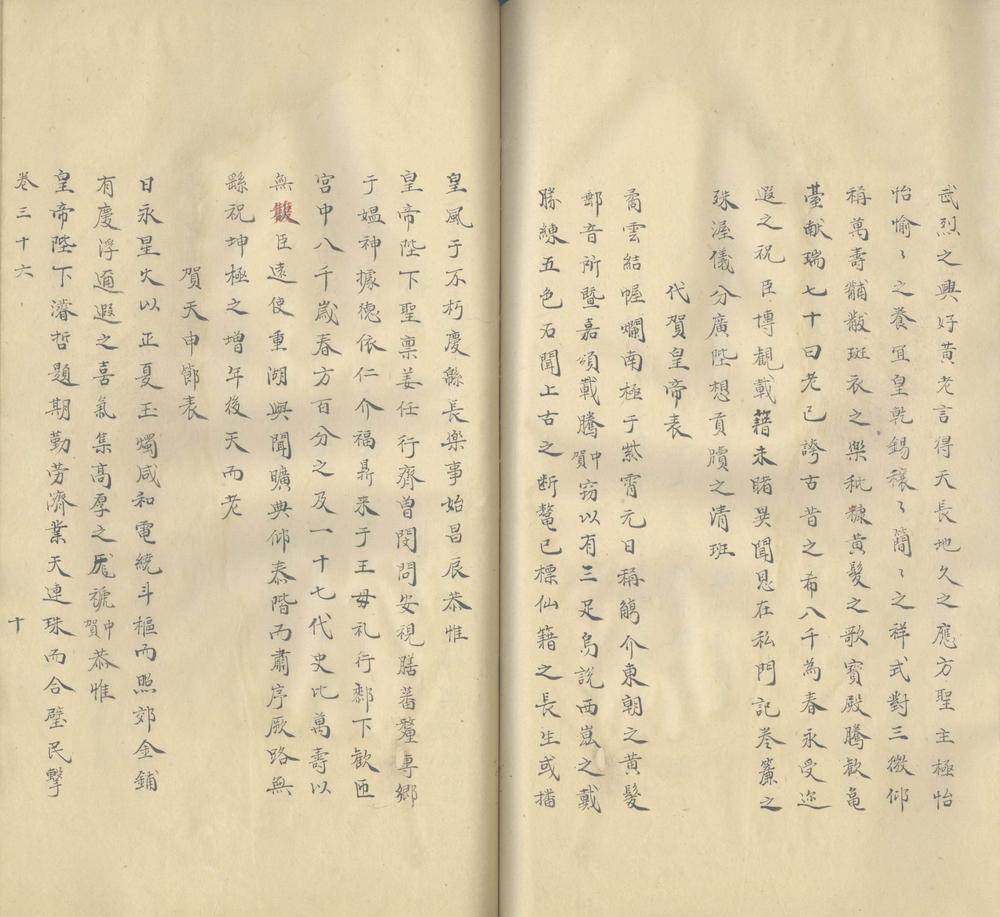 武烈之興好黃老言得天長地久之應方聖主極怡
怡愉〻之養冝皇乾錫穰〻簡〻之祥式對三微仰
稱萬壽黼黻斑衣之樂秕糠黃髮之歌寳殿騰歡龜
臺献瑞七十曰老已誇古昔之希八千為春永受迩
遐之祝臣博観載籍未睹異聞恩在私門記卷簾之
珠渥儀分廣陛想貢牘之清班
代賀皇帝表
矞雲結幄爛南極于紫霄元日稱觴介東朝之黃髮
郵音所暨嘉頌載騰中賀窃以有三足烏說西崑之戴
勝練五色石聞上古之断鼇已標仙籍之長生或播
皇風于不朽慶緜長楽事始昌辰恭惟
皇帝陛下聖禀姜任行齊曽閔問安視膳蕃釐專郷
于媪神據德依仁介福鼎来于王母礼行鄰下歡匝
宮中八千歲春方百分之及一十七代史比萬壽以
無雙臣遠使重湖興聞曠典仰泰階而肅序厥路無
繇祝坤極之增年後天而老
賀天申節表
日永星火以正夏玉燭咸和電繞斗樞而照郊金鋪
有慶浮邇遐之喜氣集髙厚之厖禠中賀恭惟
皇帝陛下濬哲題期勤劳濟業天連珠而合璧民擊
卷三十六
十